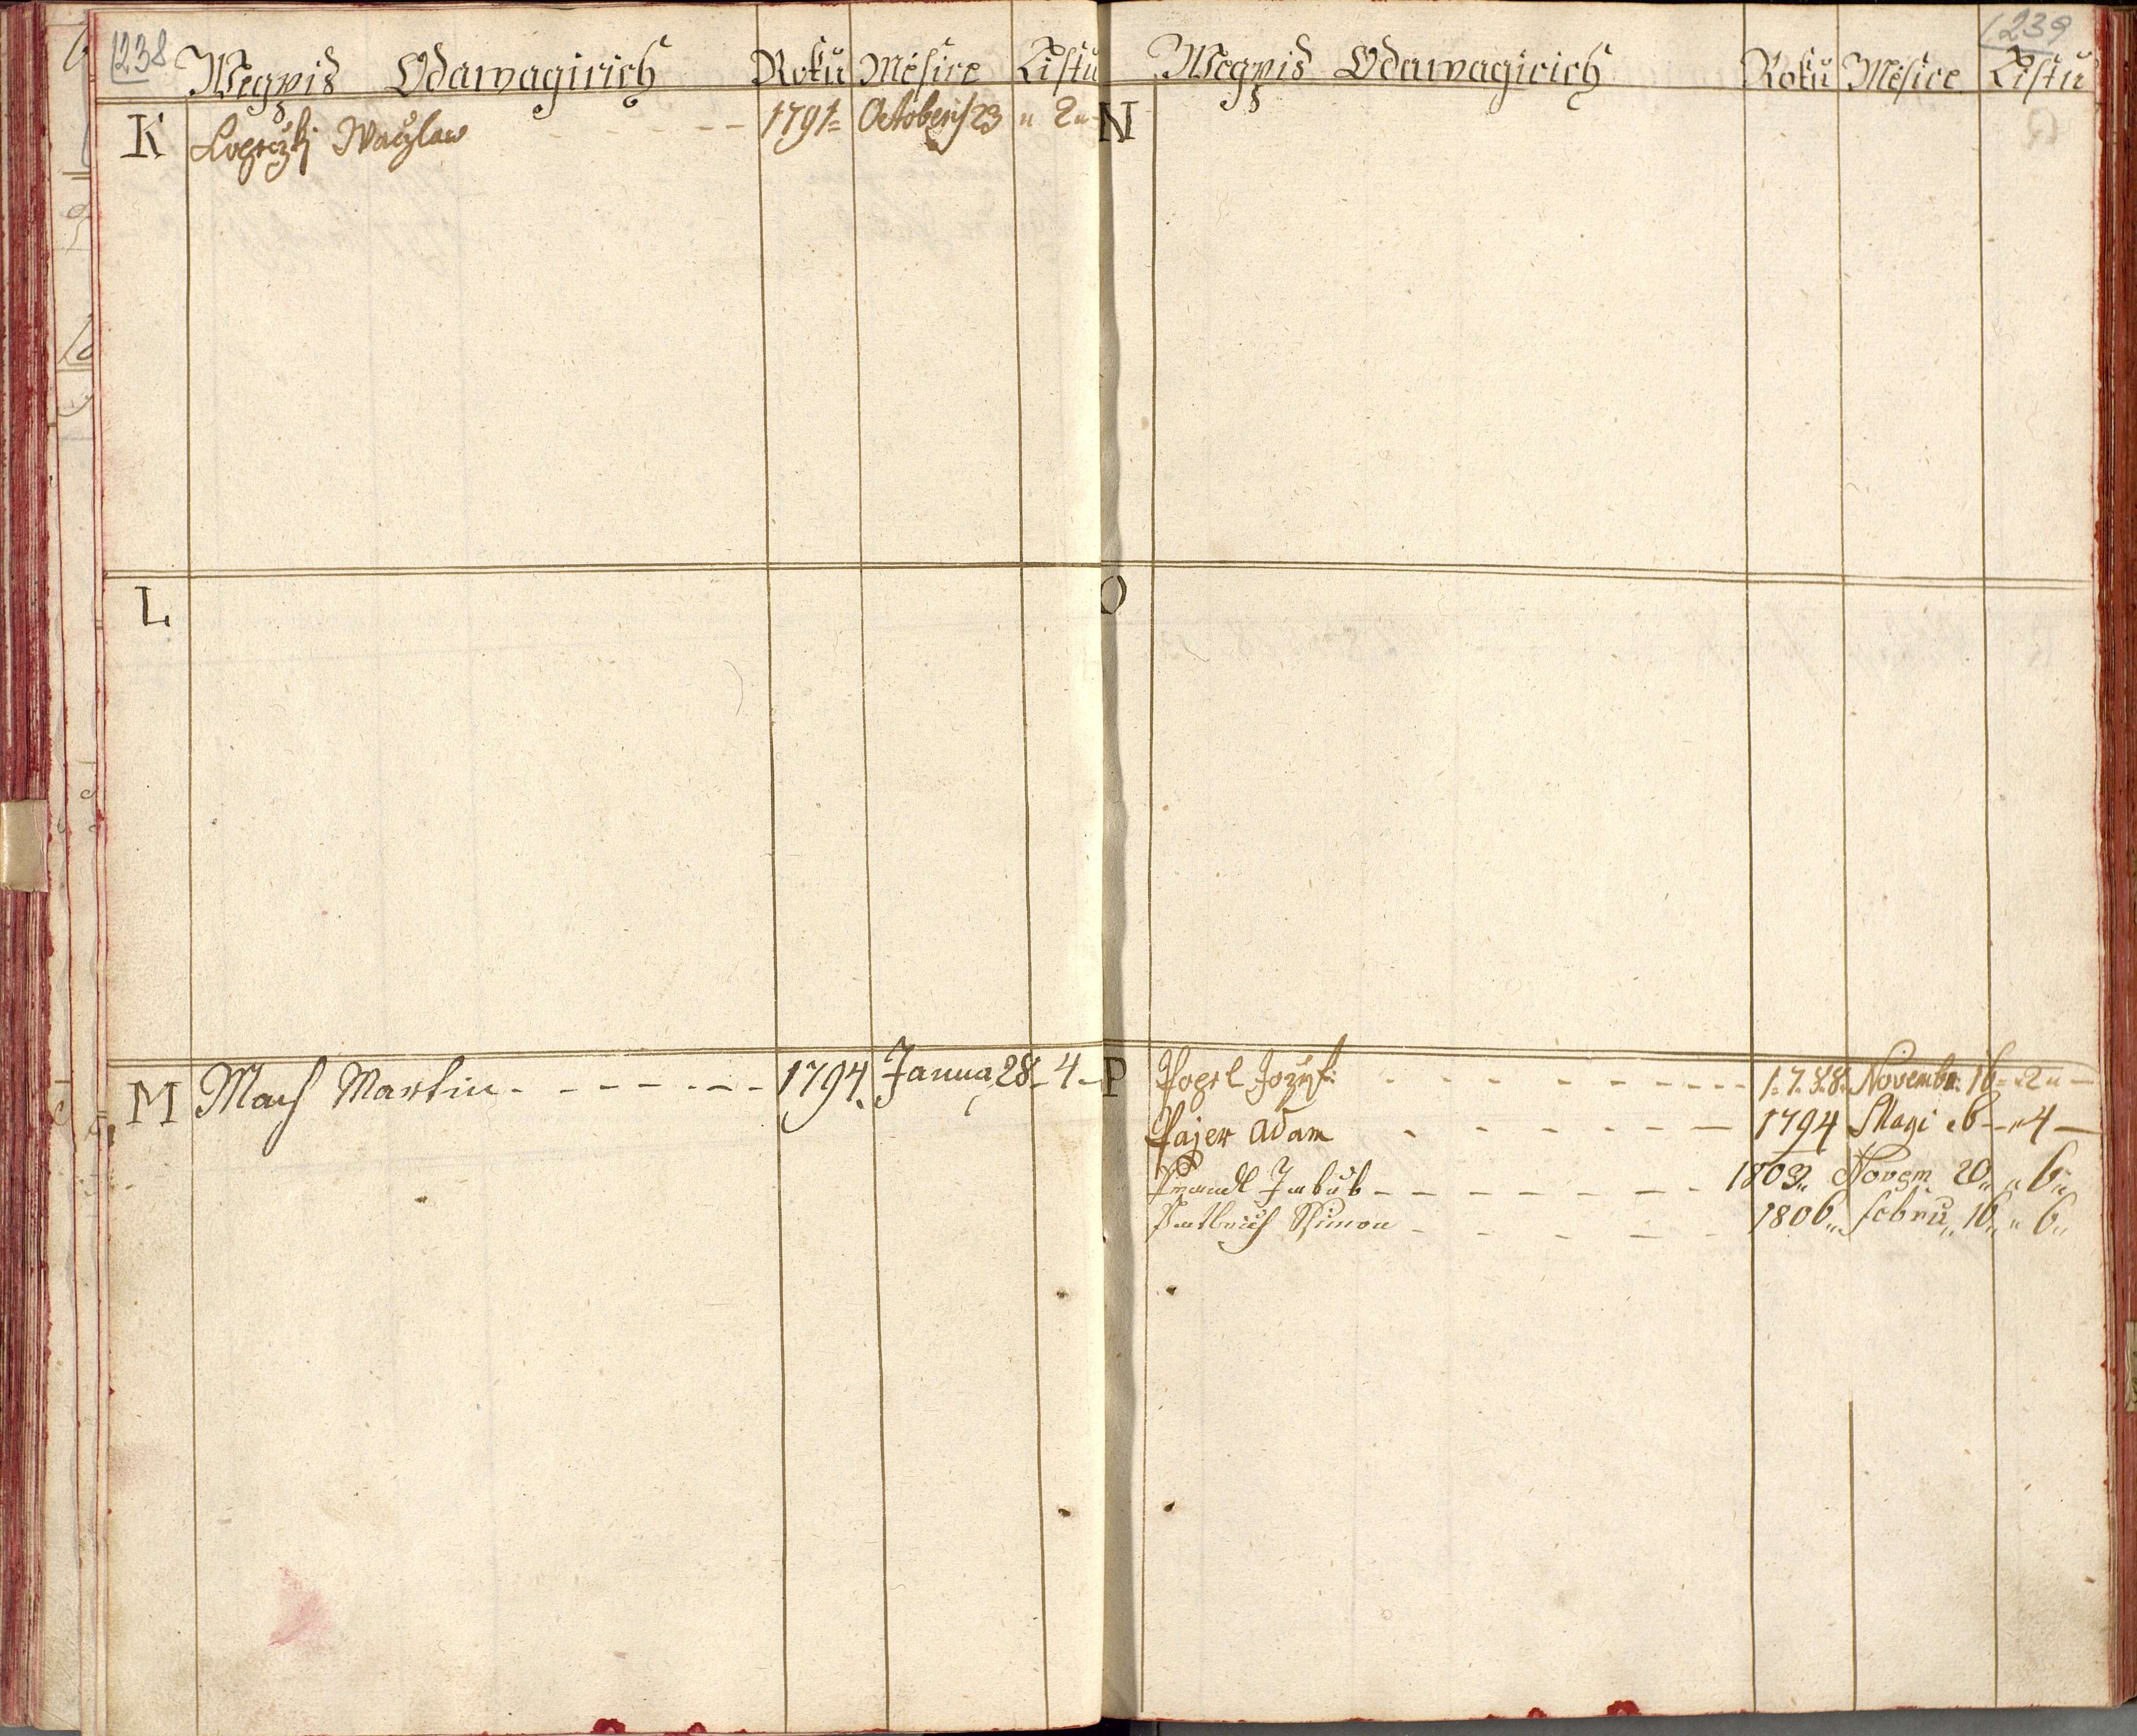 238
Wegpis Odawagicich Roku Měsice Listu
K Waczlaw 1791 Octobris 23 2
L
M Mach Martin 1794 Janua 28 4
239
Wegpis Odawagicich Roku Měsice Listu
N
O
P Pogrl Jozef 1788 Novembr: 16 2
Pajer Adam 1794 Magi 6 4
Jakub 1803 Novem 20 6
Ssimon 1806 Febru 16 6